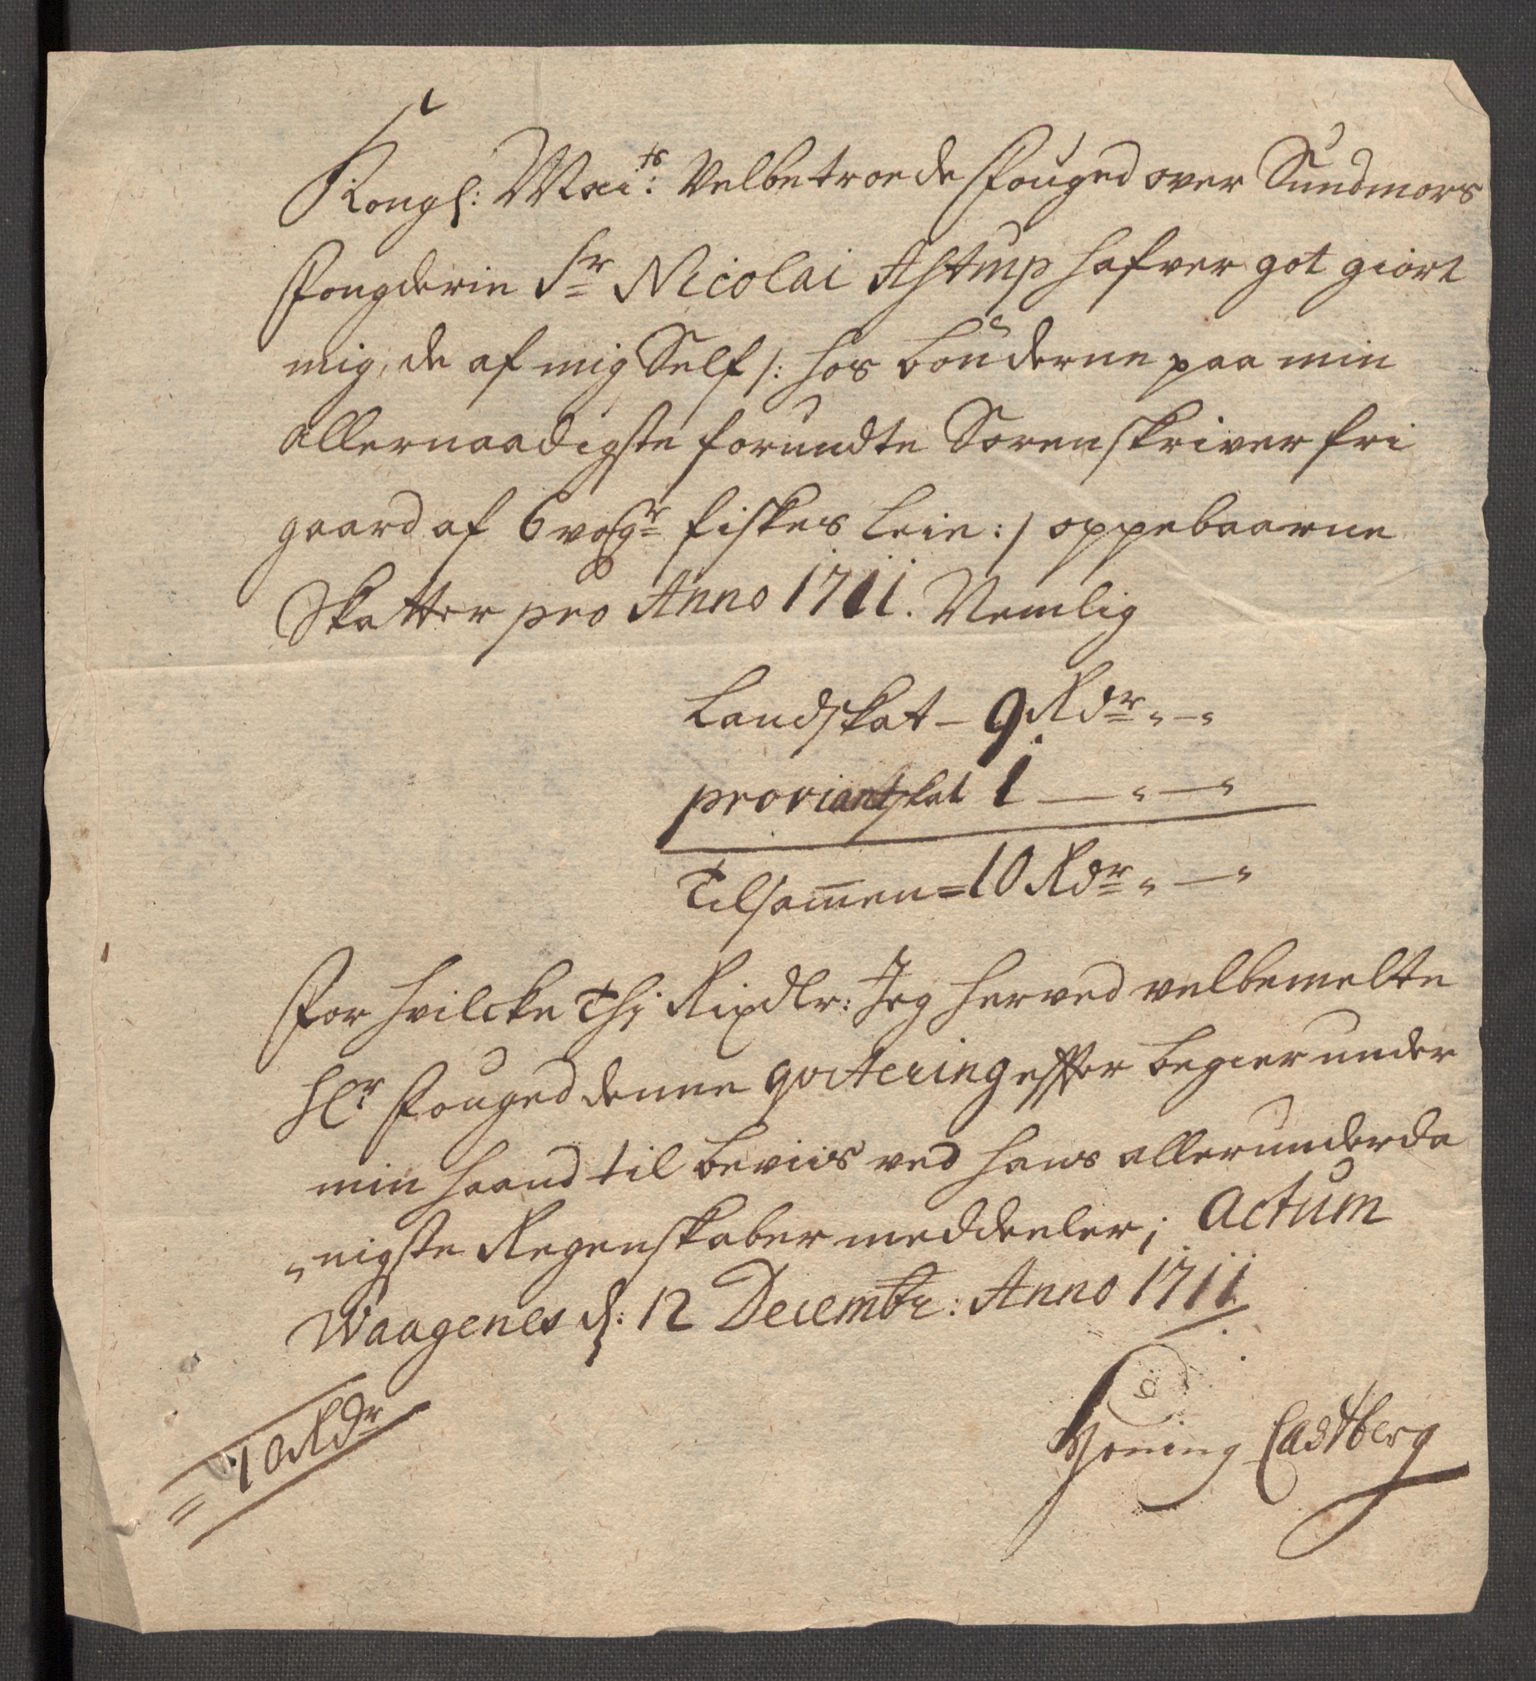 Kongl: Mai:ts Velbetroede Fouged over Sundmørs
Fougderie Sr Nicolai Astrup hafver got giort
mig, de af mig Self /: hos bønderne paa min
allernaadigste forundte Sorenskriver fri
gaard af 6 vogr fiskes leie :/ oppebaarne
Skatter pro Anno 1711. Nemlig
Landskat – 9 Rdr „ — „
proviantskat 1 — „ — „
Tilsamen = 10 Rdr „ — „
For hvilcke Thi Rixdlr: Jeg herved velbemelte
Hr Fouged denne qvitering effter begier under
min haand til beviis ved hans allerunderda
„nigste Regenskaber meddeeler; Actum
Waagenes d: 12 Decembr: Anno 1711
Honing Castberg
= 10 Rdr